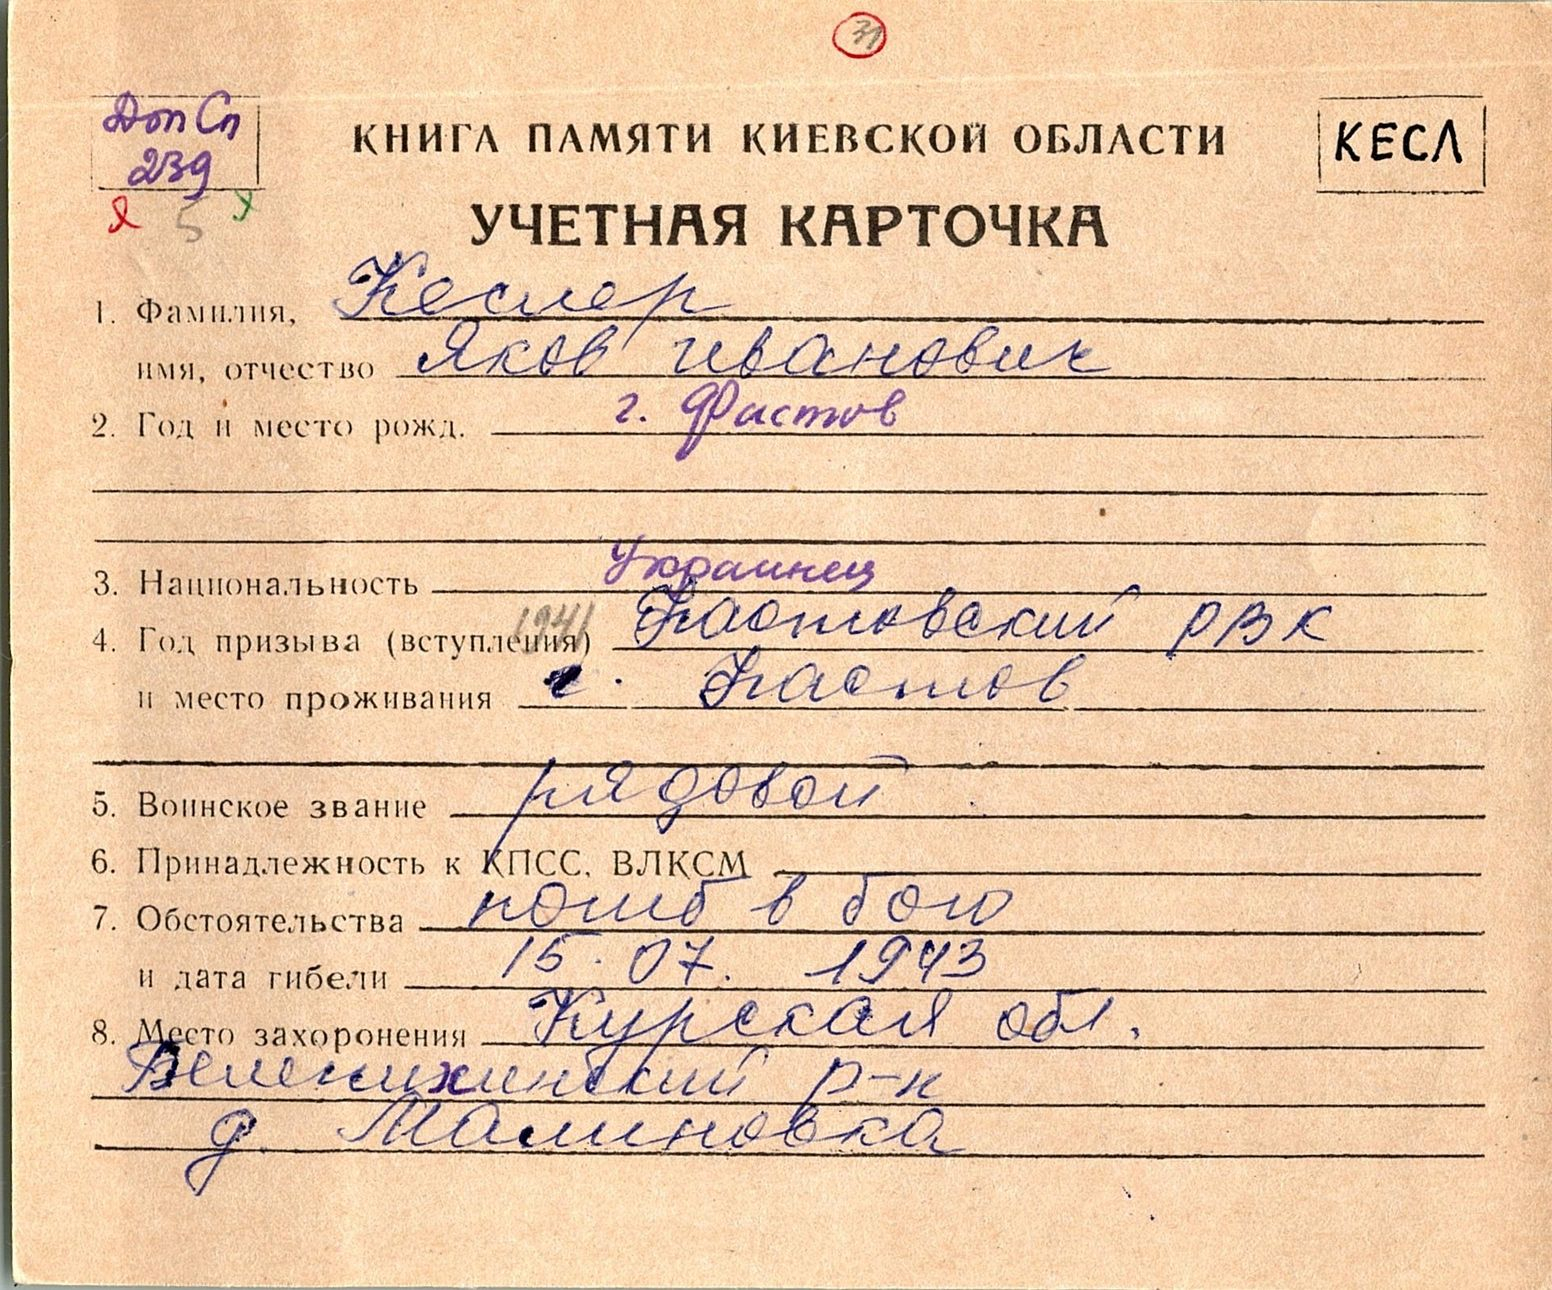 31
Доп Сп
239
5
КНИГА ПАМЯТИ КИЕВСКОЙ ОБЛАСТИ
КЕСЛ
УЧЕТНАЯ КАРТОЧКА
1. Фамилия, Кеслер
имя, отчество Яков Иванович
2. Год и место рожд. г. Фастов
3. Национальность Украинец
4. Год призыва (вступления) 1941 Фастовский РВК
и место проживания г. Фастов
5. Воинское звание рядовой
6. Принадлежность к КПСС, ВЛКСМ
7. Обстоятельства погиб в бою
и дата гибели 15.07. 1943
8. Место захоронения Курская обл.
Беленихинский р-н
д. Малиновка